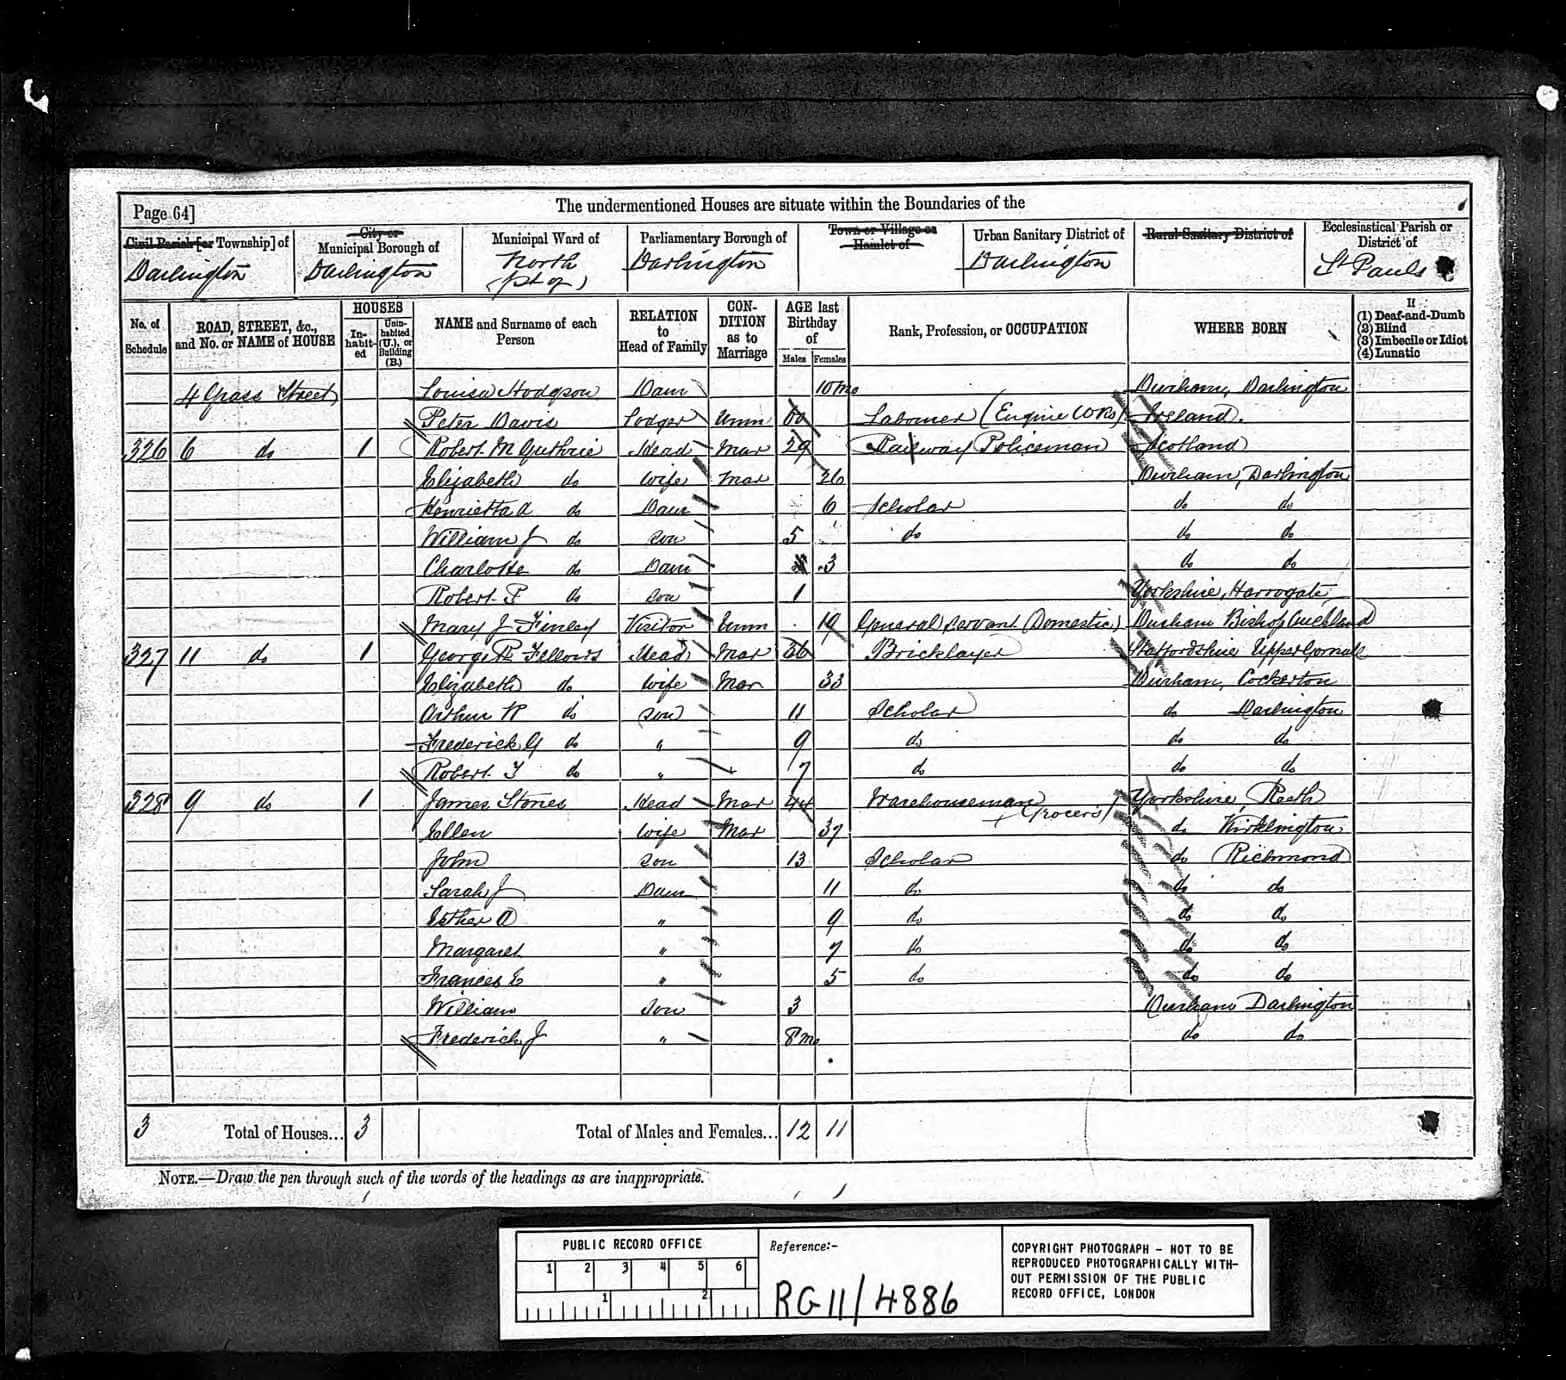 Page 64] The undermentioned Houses are situate within the Boundaries of the
Civil Parish [or Township] of City or Municipal Borough of Municipal Ward of Parliamentary Borough of Town or Village or Hamlet of Urban Sanitary District of Rural Sanitary District of Ecclesiastical Parish or District of
Darlington Darlington North (pt of) Darlington Darlington St Pauls
No. of Schedule ROAD, STREET, &c., and No. or NAME of HOUSE HOUSES In-habit-ed Unin-habited (U.), or Building (B.) NAME and Surname of each Person RELATION to Head of Family CON-DITION as to Marriage AGE last Birthday of Males Females Rank, Profession, or OCCUPATION WHERE BORN If (1) Deaf-and-Dumb (2) Blind (3) Imbecile or Idiot (4) Lunatic
4 Grass Street Louisa Hodgson Daur 10 mo Durham, Darlington
Peter Davis Lodger Unm 60 Labourer (Engine Wks) Ireland.
326 6 do 1 Robert McGuthrie Head Mar 29 Railway Policeman Scotland
Elizabeth do Wife Mar 26 Durham, Darlington
Henrietta A do Daur 6 Scholar do do
William J do Son 5 do do do
Charlotte do Daur 3 do do
Robert F do Son 1 Yorkshire, Harrogate
Mary J Finley Visitor Unm 19 General Servant (Domestic) Durham Bishop Auckland
327 11 do 1 George R Fellows Head Mar 36 Bricklayer Staffordshire Upper Gornall
Elizabeth do Wife Mar 33 Durham, Cockerton
Arthur W do Son 11 Scholar do Darlington
Frederick G do " 9 do do do
Robert T do " 7 do do do
328 9 do 1 James Stones Head Mar 44 Warehouseman (Grocers) Yorkshire, Reeth
Ellen Wife Mar 37 do Kirklington
John Son 13 Scholar do Richmond
Sarah J Daur 11 do do do
Esther A " 9 do do do
Margaret " 7 do do do
Frances E " 5 do do do
William Son 3 Durham Darlington
Frederick J " 8 mo do do
3 Total of Houses... 3 Total of Males and Females... 12 11
NOTE.—Draw the pen through such of the words of the headings as are inappropriate.
PUBLIC RECORD OFFICE
1 2 3 4 5 6
1 2
Reference:-
RG 11/4886
COPYRIGHT PHOTOGRAPH - NOT TO BE
REPRODUCED PHOTOGRAPHICALLY WITH-
OUT PERMISSION OF THE PUBLIC
RECORD OFFICE, LONDON